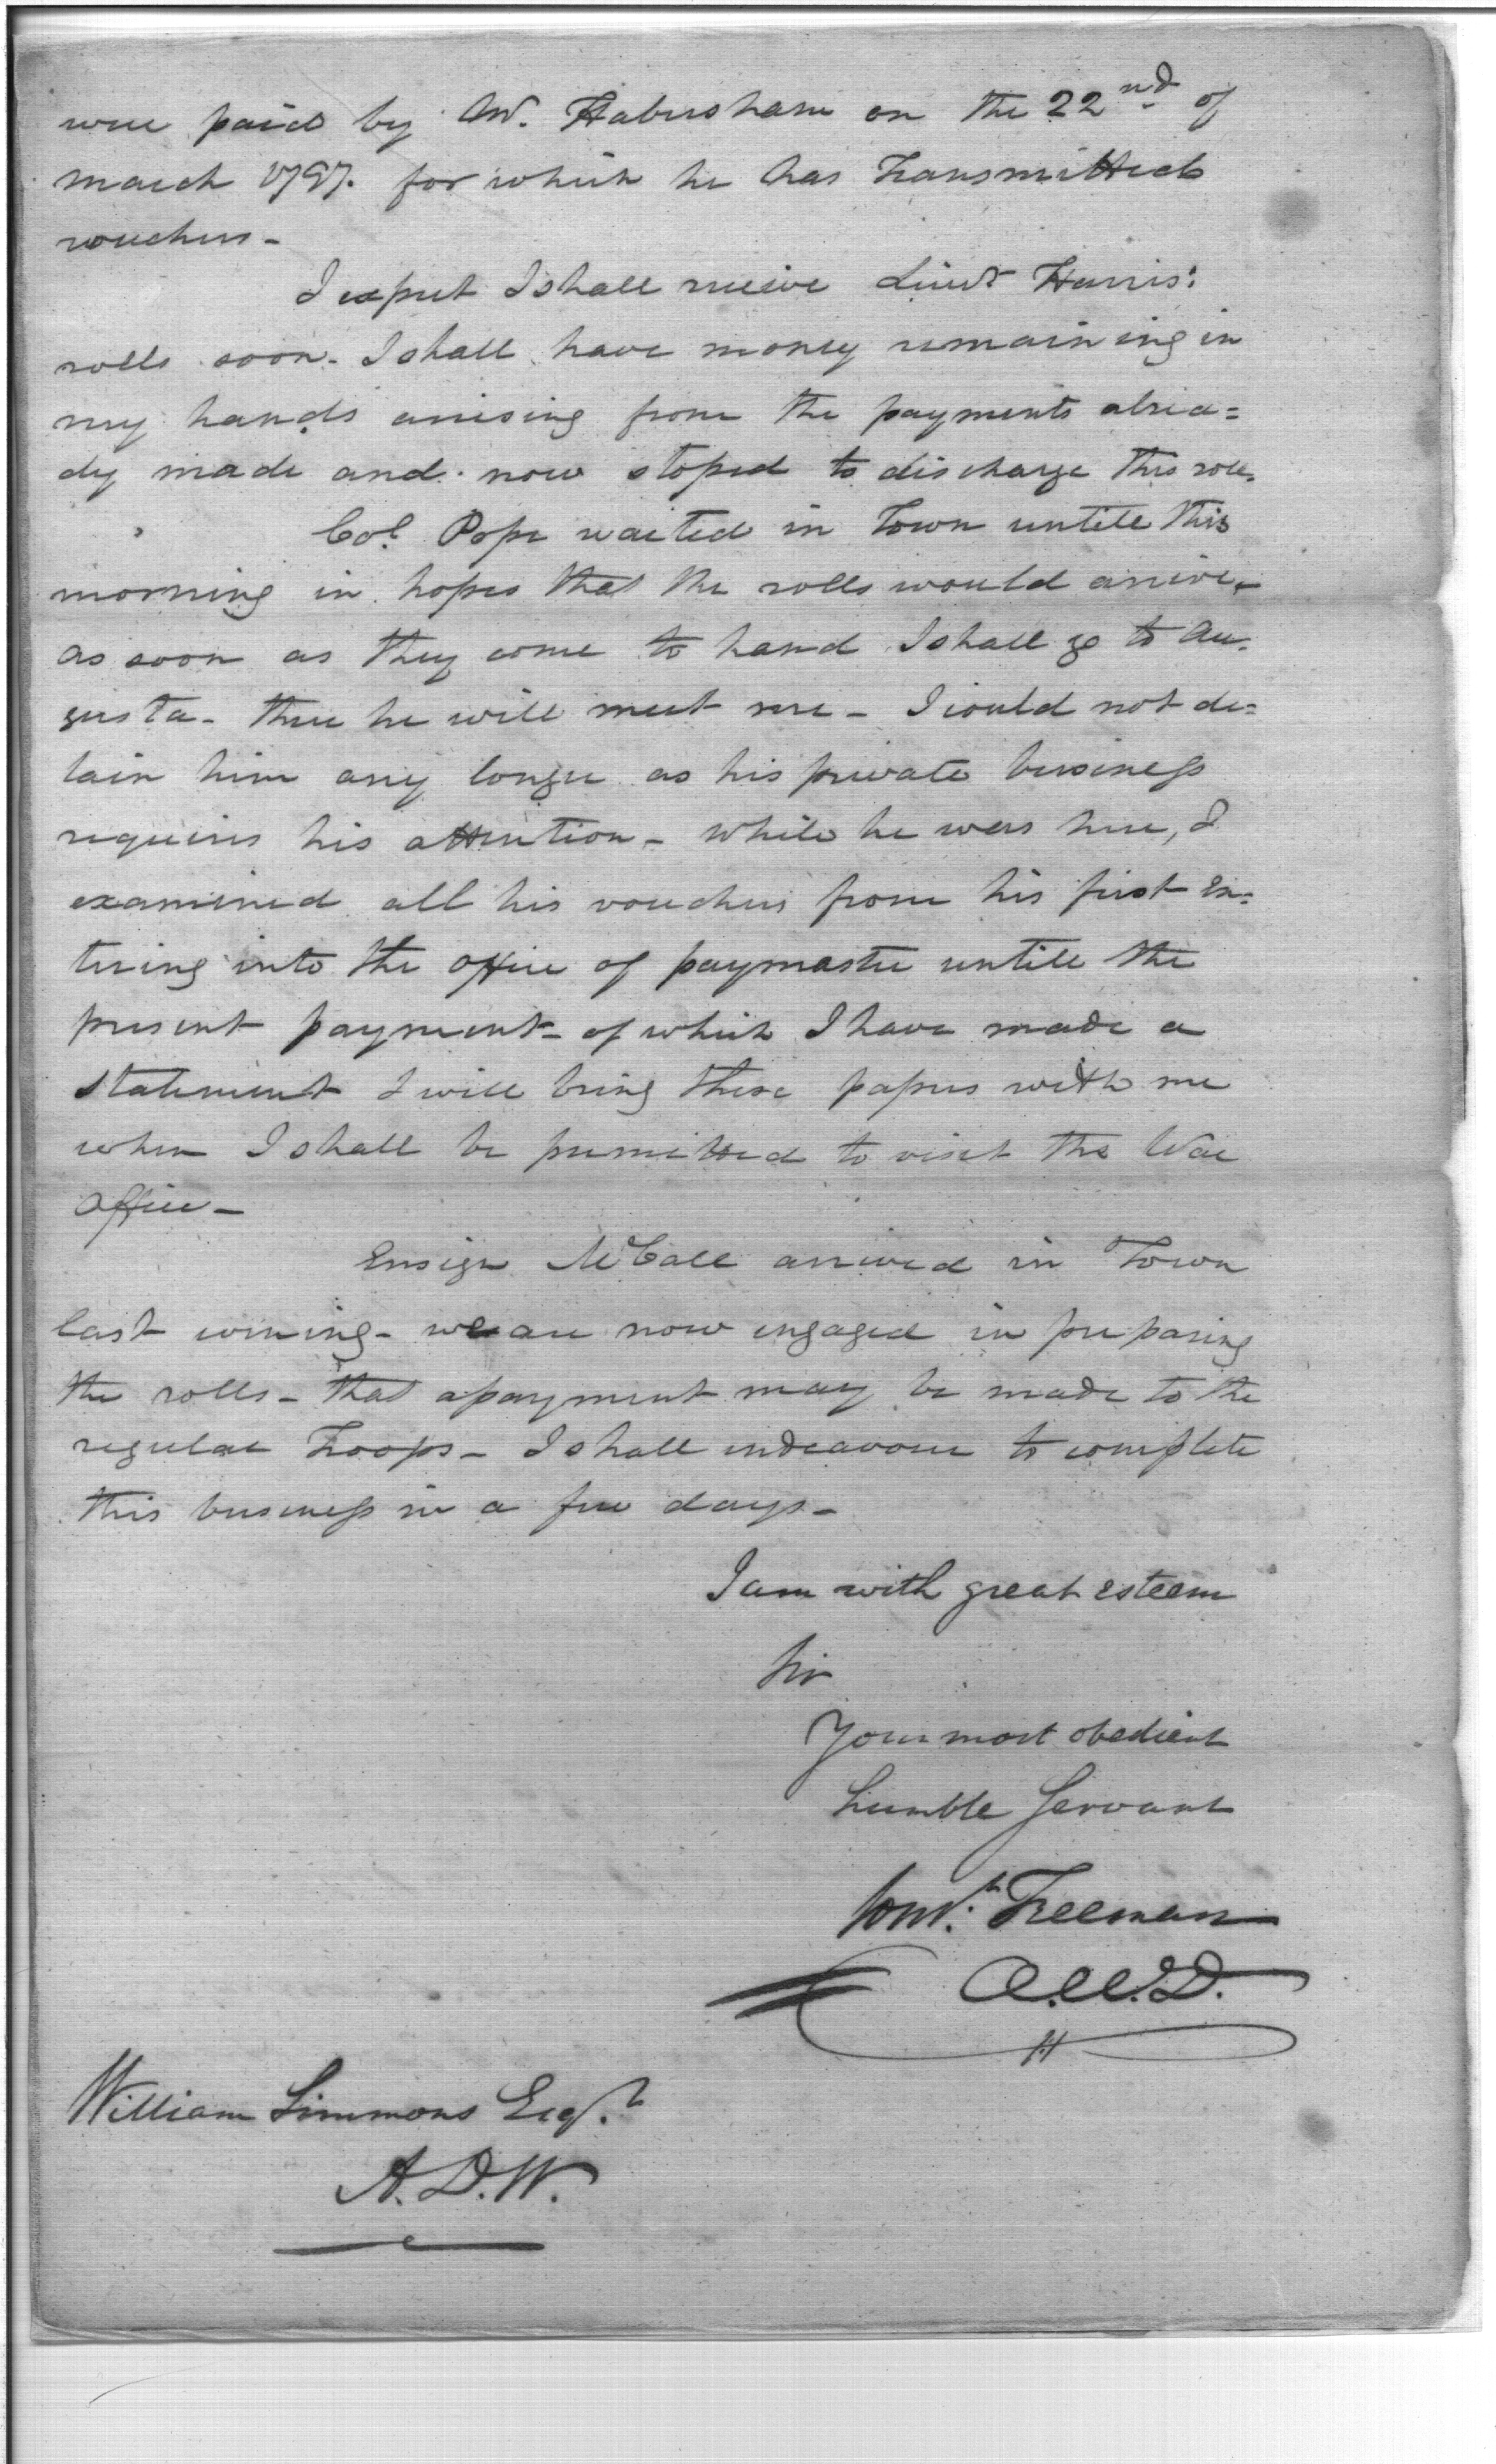 were paid by Mr. Habersham on the 22nd of
march 1797. for which he has Transmitted
vouchers -
I expect I shall receive Lieut Harris's
rolls soon. I shall have money remaining in
my hands arrising from the payments alrea=
dy made and now stoped to discharge this role.
Col. Pope waited in Town untill this
morning in hopes that the rolls would arrive.
as soon as they come to hand I shall go to Au=
gusta - there he will meet me - I could not de=
tain him any longer as his private business
requires his attention - while he was here, I
examined all his vouchers from his first en=
tering into the office of paymaster untill the
present payment - of which I have made a
statement I will bring these papers with me
when I shall be permitted to visit the War
office -
Ensign McCall arrived in Town
last evening - we are now engaged in preparing
the rolls - that a payment may be made to the
regular Troops - I shall endeavour to complete
this business in a few days -
I am with great esteem
Sir
Your most obedient
humble Servant
Constt. Freeman
A.W.D.
William Simmons Esqr.
A.D.W.